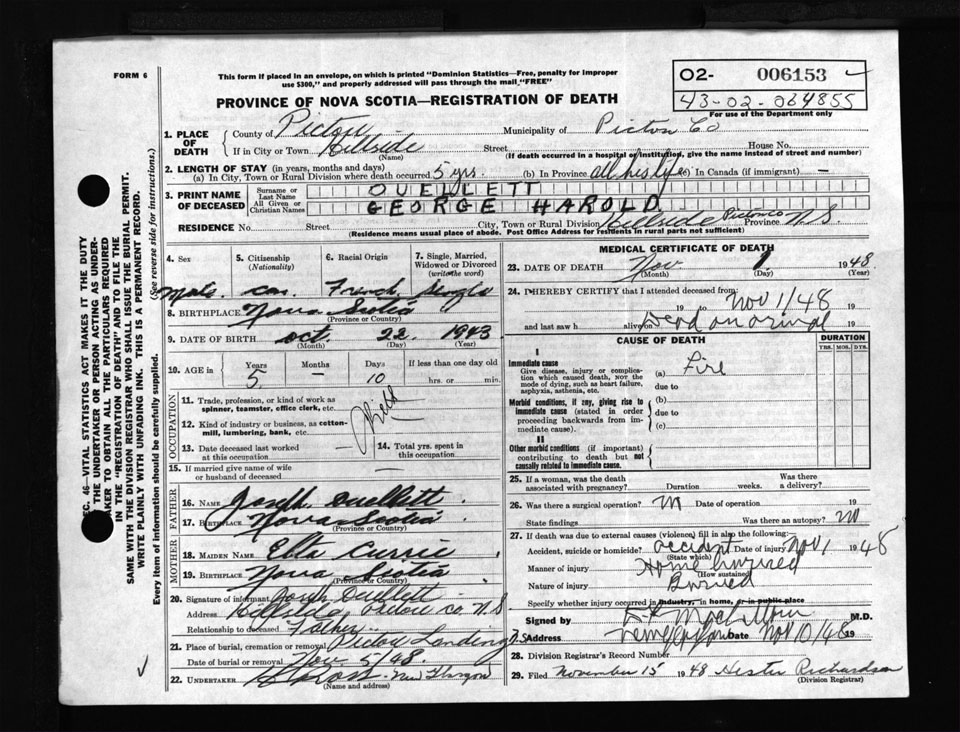 FORM 6
This form if placed in an envelope, on which is printed "Dominion Statistics—Free, penalty for improper
use $300," and properly addressed will pass through the mail "FREE"
PROVINCE OF NOVA SCOTIA—REGISTRATION OF DEATH
02- 006153
43-02-064855
For use of the Department only
1. PLACE OF DEATH
County of Pictou Municipality of Pictou Co
If in City or Town Hillside Street House No.
(Name) (If death occurred in a hospital or institution, give the name instead of street and number)
2. LENGTH OF STAY (in years, months and days)
(a) In City, Town or Rural Division where death occurred 5 yrs. (b) In Province all his life (c) In Canada (if immigrant) —
3. PRINT NAME OF DECEASED
Surname or Last Name OUELLETT
All Given or Christian Names GEORGE HAROLD
RESIDENCE No. Street City, Town or Rural Division Hillside Pictou Co Province N.S.
(Residence means usual place of abode. Post Office Address for residents in rural parts not sufficient)
SEC. 46—VITAL STATISTICS ACT MAKES IT THE DUTY
OF THE UNDERTAKER OR PERSON ACTING AS UNDER-
TAKER TO OBTAIN ALL THE PARTICULARS REQUIRED
IN THE "REGISTRATION OF DEATH" AND TO FILE THE
SAME WITH THE DIVISION REGISTRAR WHO SHALL ISSUE THE BURIAL PERMIT.
WRITE PLAINLY WITH UNFADING INK. THIS IS A PERMANENT RECORD.
Every item of information should be carefully supplied. (See reverse side for instructions.)
4. Sex 5. Citizenship (Nationality) 6. Racial Origin 7. Single, Married, Widowed or Divorced (write the word)
Male Can. French Single
8. BIRTHPLACE Nova Scotia
(Province or Country)
9. DATE OF BIRTH Oct. 22 1943
(Month) (Day) (Year)
10. AGE in Years Months Days If less than one day old
5 — 10 hrs. or min.
OCCUPATION
11. Trade, profession, or kind of work as spinner, teamster, office clerk, etc.
12. Kind of industry or business, as cotton-mill, lumbering, bank, etc.
13. Date deceased last worked at this occupation
14. Total yrs. spent in this occupation
15. If married give name of wife or husband of deceased —
FATHER
16. NAME Joseph Ouellett
17. BIRTHPLACE Nova Scotia
(Province or Country)
MOTHER
18. MAIDEN NAME Etta Currie
19. BIRTHPLACE Nova Scotia
(Province or Country)
20. Signature of informant Ouellett
Address Hillside Pictou Co. N.S
Relationship to deceased Father
21. Place of burial, cremation or removal Pictou Landing N.S
Date of burial or removal Nov 5/48.
22. UNDERTAKER Ross New Glasgow
(Name and address)
MEDICAL CERTIFICATE OF DEATH
23. DATE OF DEATH Nov 1. 1948
(Month) (Day) (Year)
24. I HEREBY CERTIFY that I attended deceased from:
19 to Nov 1/48 19
and last saw h alive on Dead on arrival 19
CAUSE OF DEATH DURATION
YRS. MOS. DYS.
I
Immediate cause
Give disease, injury or complication which caused death, not the mode of dying, such as heart failure, asphyxia, asthenia, etc.
(a) Fire
due to
Morbid conditions, if any, giving rise to immediate cause (stated in order proceeding backwards from immediate cause).
(b)
due to
(c)
II
Other morbid conditions (if important) contributing to death but not causally related to immediate cause.
25. If a woman, was the death associated with pregnancy? Duration weeks. Was there a delivery?
26. Was there a surgical operation? No Date of operation 19
State findings Was there an autopsy? No
27. If death was due to external causes (violence) fill in also the following:
Accident, suicide or homicide? accident Date of injury Nov 1 1948
(State which)
Manner of injury Home burned
(How sustained)
Nature of injury Burned
Specify whether injury occurred in industry, in home, or in public place
Signed by M.D.
Address Date Nov 10/48 19
28. Division Registrar's Record Number
29. Filed November 15 1948 Hester Richardson
(Division Registrar)